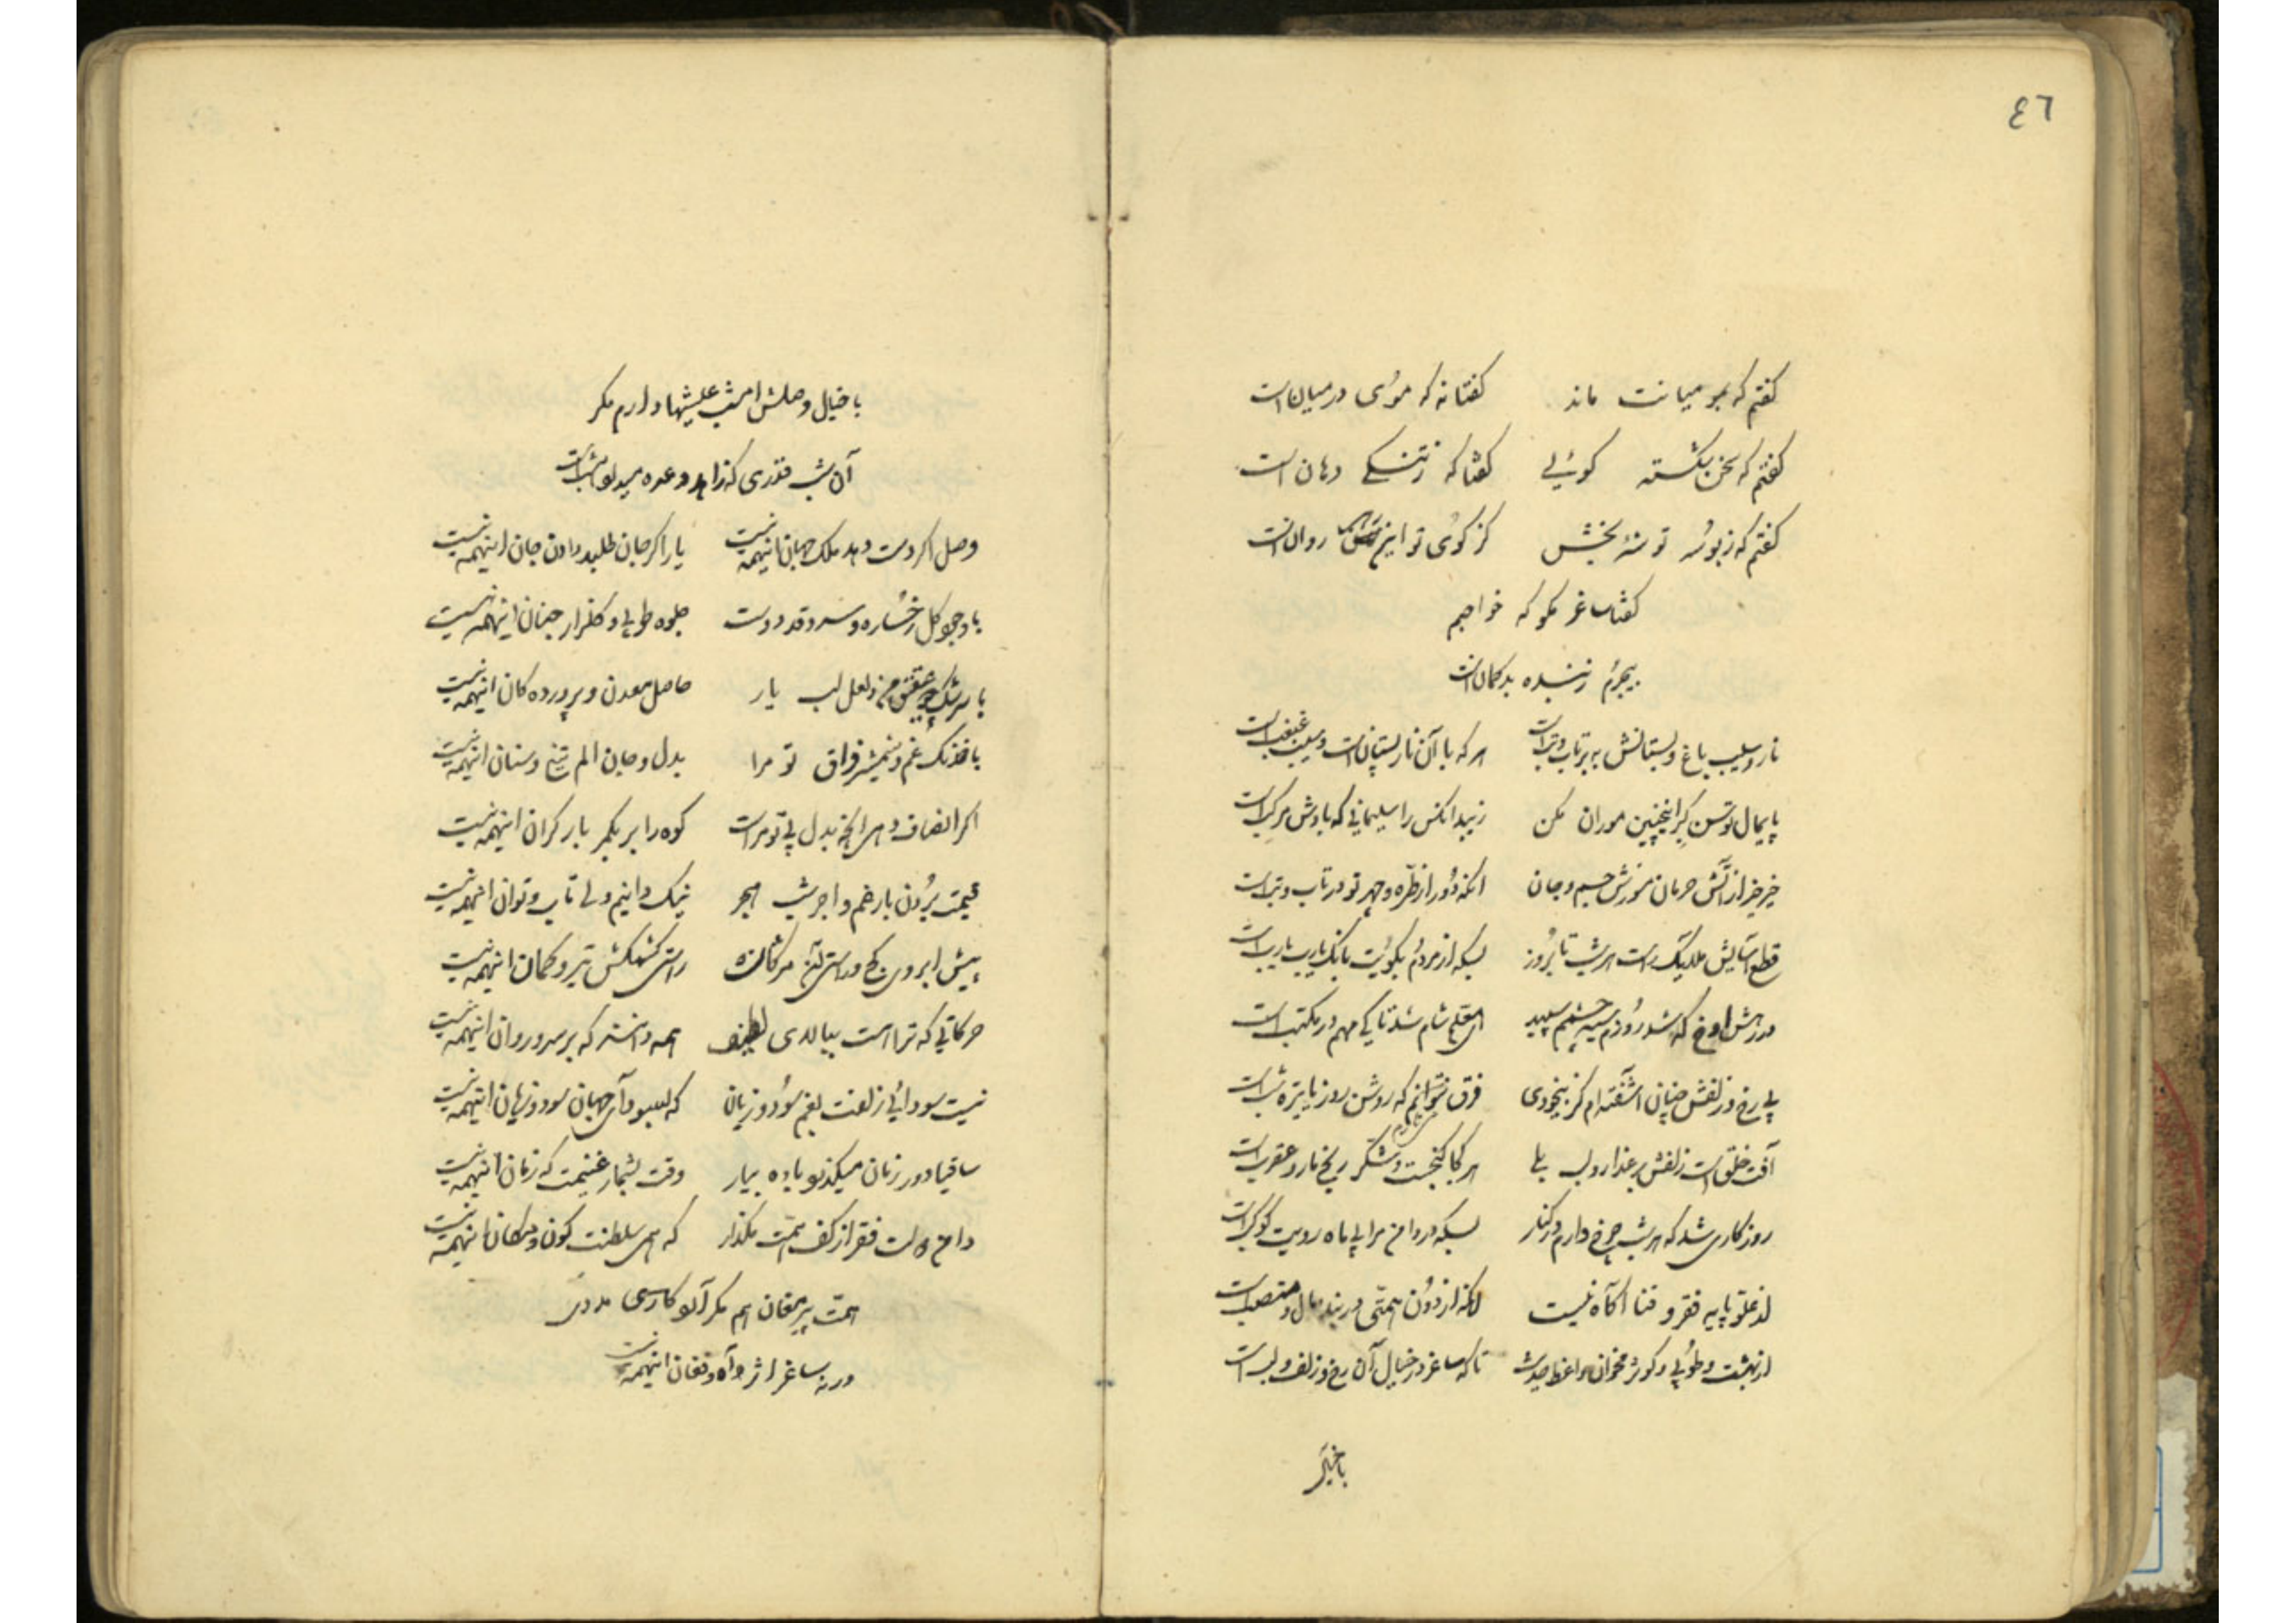 ٤٦
کفتم که بمو میانت ماند کفتا نه که موئی در میان است
کفتم که سخن شکسته کوئی کفتا که ز تنکی دهان است
کفتم که ز بوسه توشهٔ بخش کز کوی تو این روان است
کفتا ساغر مکو که خواهم
بیجرم ز بنده بدکمان است
نار و سیب باغ و بستانش به پر تاب و تب است هر که با آن نار پستان است و سیب غبغب است
پایمال توسن کبر اینچنین موران مکن زیبد انکس را سلیمانی که بادش مرکب است
خیز خیز از آتش حرمان مسوزش جسم و جان انکه دور از طره و چهر تو در تاب و تب است
قطع آسایش ملایک راست هر شب تا بروز بسکه از مردم بکویت بانک یارب یارب است
در رهش که شد روزم سیه چشمم سپید ای معلم شام شد تا کی مهم در مکتب است
بی رخ و زلفش چنان اشفته‌ام کز بیخودی فرق نتوانم که روشن روز یا تیره شب است
آفت خلق است زلفش بر عذار و لب بلی هر کجا کنجست و شکر رنج مار و عقرب است
روزکاری شد که هر شب چرخ دارم در کنار بسکه در دامن مرا بی ماه رویت کوکب است
از علو پایه فقر و فنا آکاه نیست انکه از دون همتی در بند مال و منصب است
از بهشت و طوبی و کوثر مخوان واعظ حدیث تا که ساغر در خیال آن رخ و زلف و لب است
با خیال
با خیال وصلش امشب عیشها دارم مکر
آن شب قدری که زاهد وعده میداد امشب است
وصل اکر دست دهد ملک جهان اینهمه نیست یار اکر جان طلبد دادن جان اینهمه نیست
با وجود کل رخساره و سرو قد دوست جلوه طوبی و کلزار جنان اینهمه نیست
با سرشک چو عقیق من و لعل لب یار حاصل معدن و پرورده کان اینهمه نیست
با خدنک غم و شمشیر فراق تو مرا بدل و جان الم تیغ و سنان اینهمه نیست
اکر انصاف دهی انچه بدل بی تو مراست کوه را بر کمر بار کران اینهمه نیست
غیمت بردن بار غم و اجر شب هجر نیک دانیم ولی تاب و توان اینهمه نیست
پیش ابروی کج و راستی مژکانت راستی کشمکش تیر و کمان اینهمه نیست
حرکاتی که ترا هست ببالای لطیف همه دانند که بر سرو روان اینهمه نیست
نیست سودائی زلفت بغم سود و زیان که ببودای جهان سود و زیان اینهمه نیست
ساقیا دور زمان میکذرد باده بیار وقت بشمار غنیمت که زمان اینهمه نیست
دامن دولت فقر از کف همت مکذار که همی سلطنت کون و مکان اینهمه نیست
همت پیر مغان هم مکر آرد کارسی مددی
ور نه ساغر اثر آه و فغان اینهمه نیست